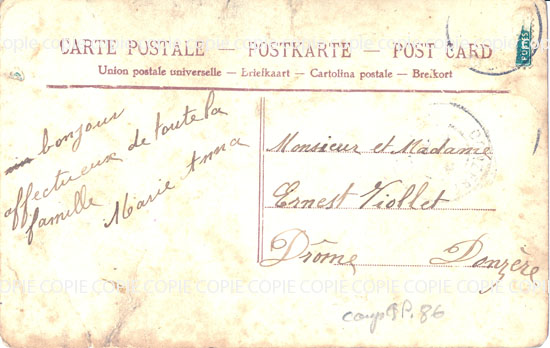 CARTE POSTALE — POSTKARTE — POST CARD
Union postale universelle — Briefkaart — Cartolina postale — Brefkort
bonjour
affectueux de toute la
famille Marie Anna
Monsieur et Madame
Ernest Viollet
Drôme Donzère
POSTES
COPIE COPIE COPIE COPIE COPIE COPIE COPIE COPIE